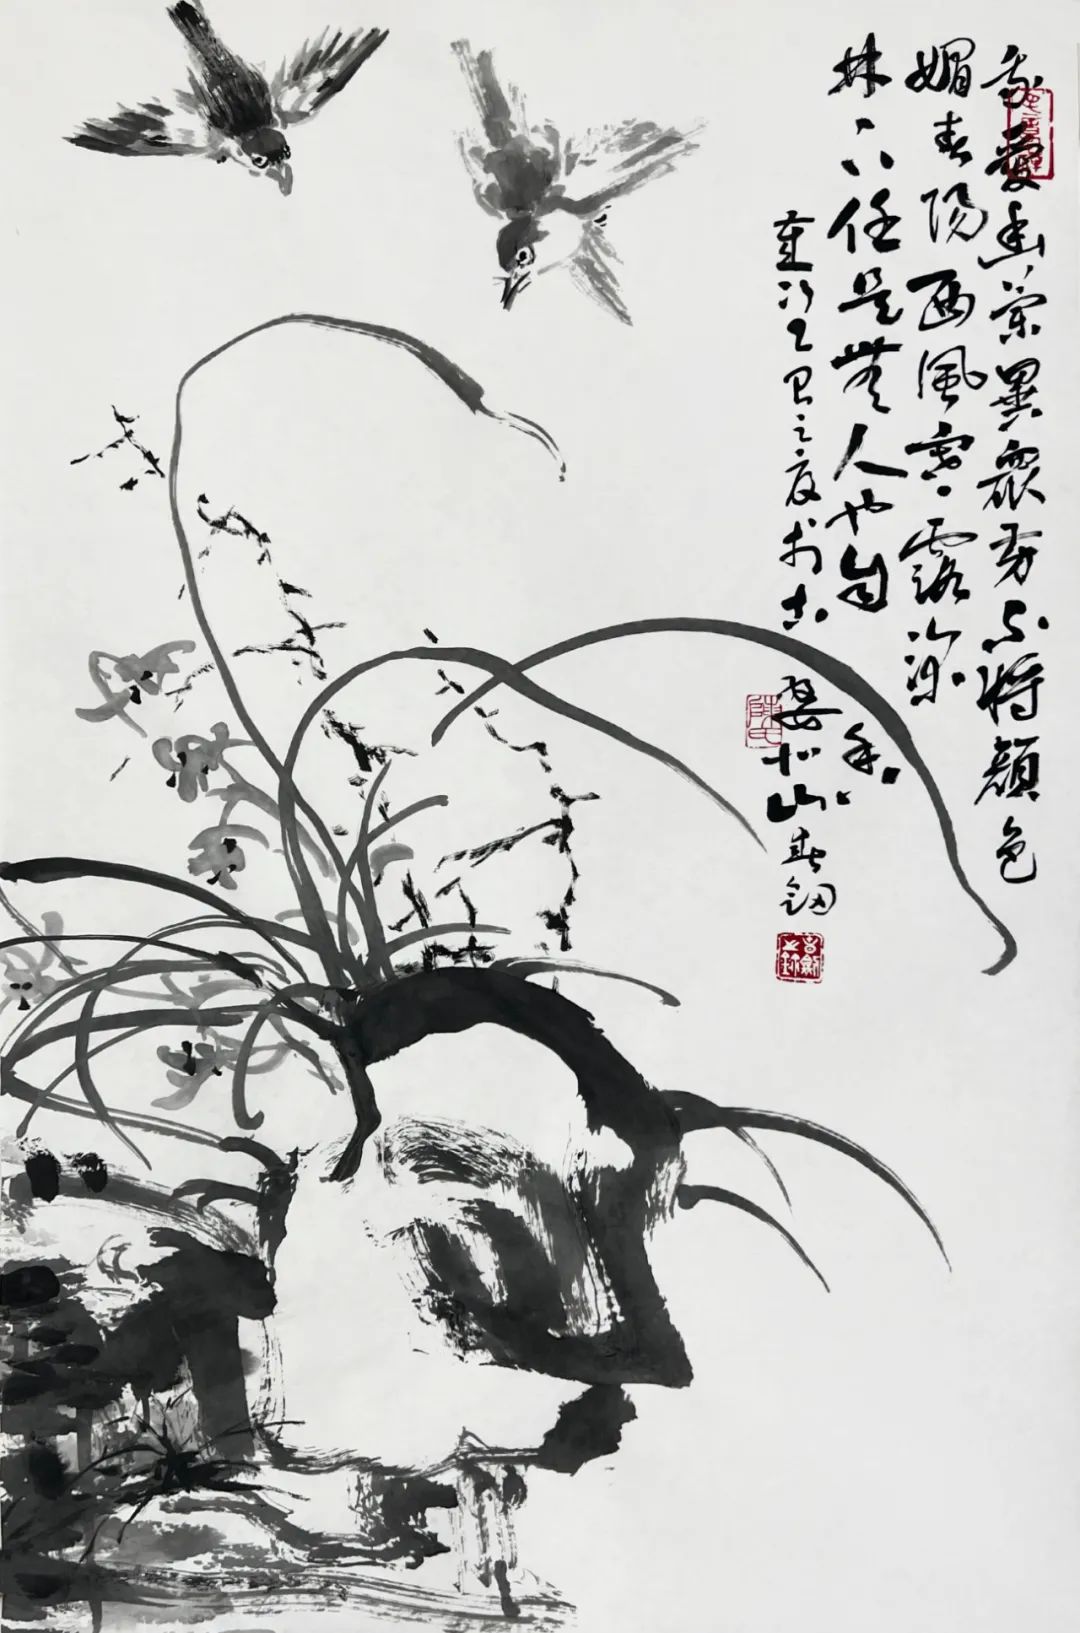 我愛幽蘭異眾芳不將顏色
媚春陽西風寒露深
林下任是無人也自香
歲次乙巳之夏於古婺山
陳氏